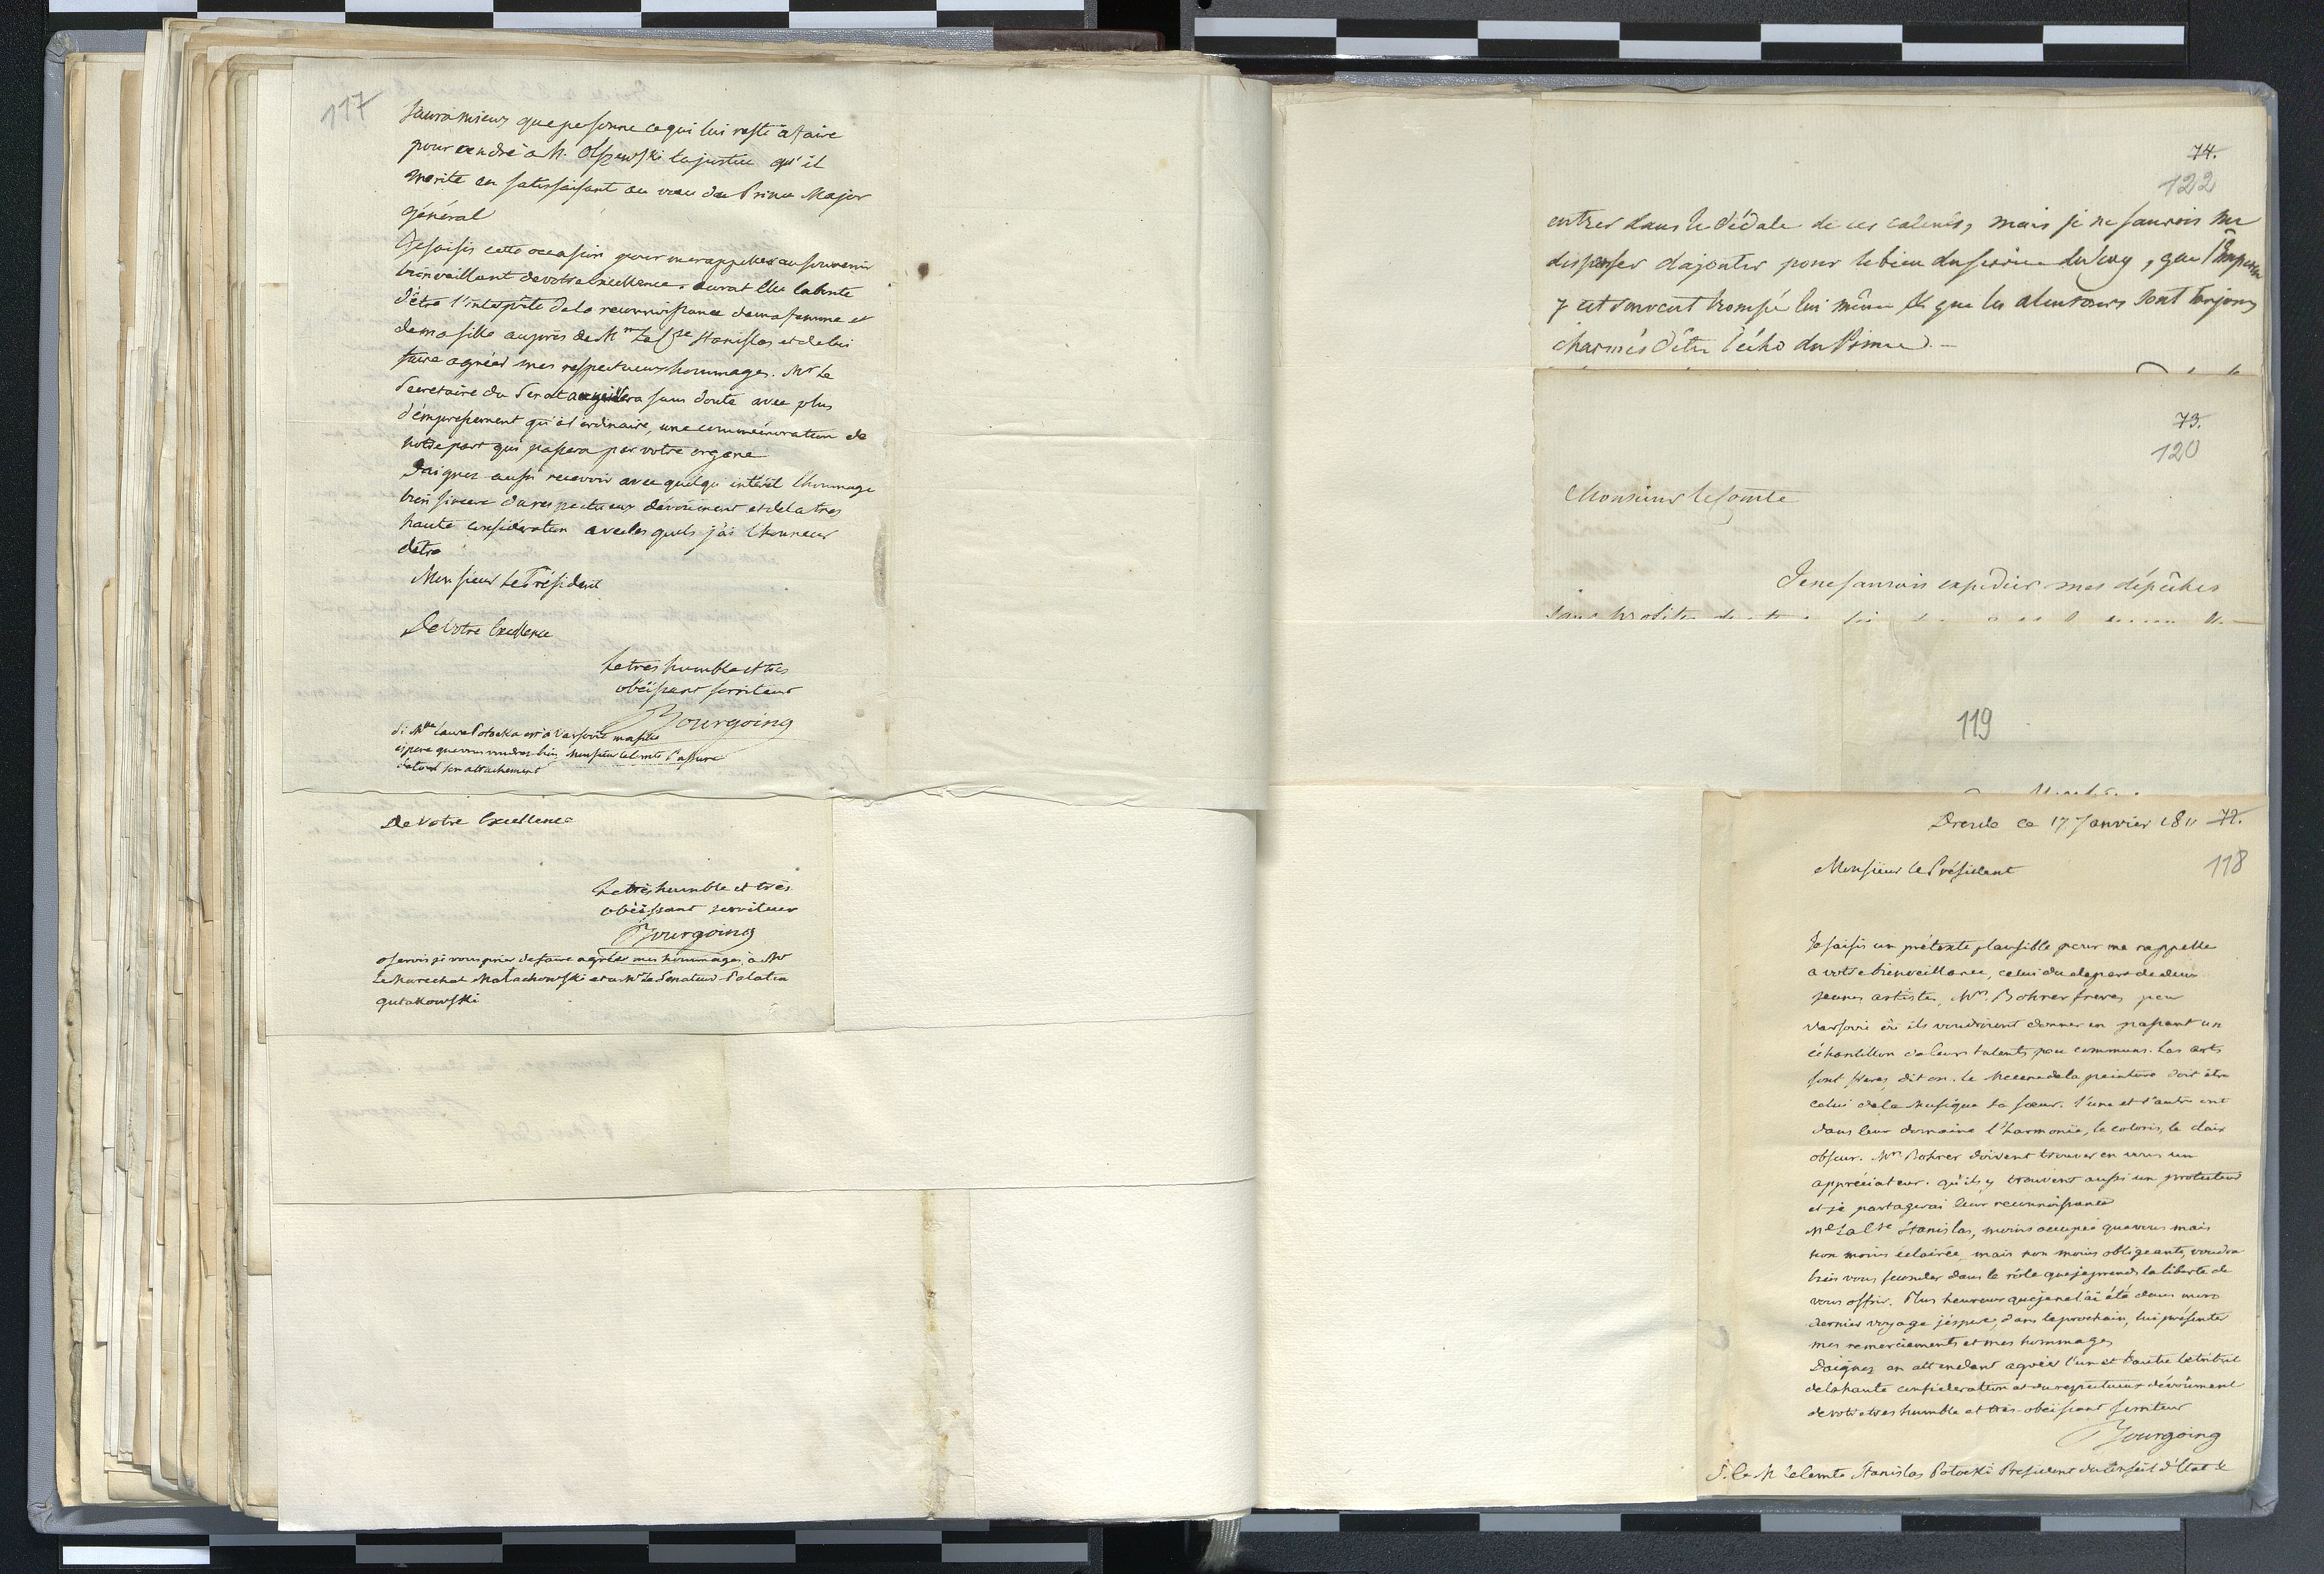 117
saura mieux que personne ce qui lui reste à faire
pour rendre à M. Olszewski la justice qu'il
merite en satisfaisant au vœu du Prince Major
général
Je saisis cette occasion pour me rappeller au souvenir
bienveillant de votre Excellence. aurat Elle la bonté
d'être l'interprête de la reconnoissance de ma femme et
de ma fille auprès de Mme La Csse Stanislas et de lui
faire agréer mes respectueux hommages. Mr Le
Secretaire du Senat sans doute avec plus
d'empressement qu'à l'ordinaire, une commémoration de
notre part qui passera par votre organe
Daignez aussi recevoir avec quelqu'intérêt l'hommage
bien sincere du respectueux dévoument et de la tres
haute considération avec les quels j'ai l'honneur
d'être
Monsieur Le Président
De Votre Excellence
Le tres humble et très
obéissant serviteur
Bourgoing
Si Mlle Laure Potocka est à Varsovie ma fille
espere que vous voudrez bien, Monsieur le Comte l'assurer
de tout son attachement
De Votre Excellence
Le très humble et très
obéissant serviteur
Bourgoing
oserois je vous prier de faire agréer mes hommages, à Mr
Le Marechal Malachowski et a Mr Le Senateur Palatin
Gutakowski
74.
122
entrer dans le dédale de ces calculs, mais je ne saurois me
dispenser d'ajouter pour le bien du service du Roy, que l'Empereur
y est souvent trompé lui même & que les alentours sont toujours
charmés d'être l'écho du Prince. –
73.
120
Monsieur le Comte
Je ne saurois expédier mes dépêches
119
Dresde ce 17 Janvier 1811 72.
118
Monsieur Le Président
Je saisis un prétexte plausible pour me rappeller
a votre bienveillance, celui du depart de deux
jeunes artistes, Mrs. Bohrer freres, pour
Varsovie où ils voudroient donner en passant un
échantillon de leurs talents peu communs. Les arts
sont freres, dit on. Le Mecene de la peinture doit être
celui de la Musique sa sœur. l'une et l'autre ont
dans leur domaine l'harmonie, le coloris, le clair
obscur. Mrs Bohrer doivent trouver en vous un
appréciateur. qu'ils y trouvent aussi un protecteur
et je partagerai leur reconnoissance
Me La Csse Stanislas, moins occupée que vous mais
non moins éclairée, mais non moins obligeante, voudra
bien vous seconder dans le rôle que je prends la liberté de
vous offrir. Plus heureux que je ne l'ai été dans mon
dernier voyage j'espere, dans le prochain, lui présenter
mes remerciements et mes hommages
Daignez en attendant agréer l'un et l'autre le tribut
de la haute considération et du respectueux dévoûment
de votre tres humble et très-obéissant serviteur
Bourgoing
S. E. M Le Comte Stanislas Potocki President du Conseil d'Etat &